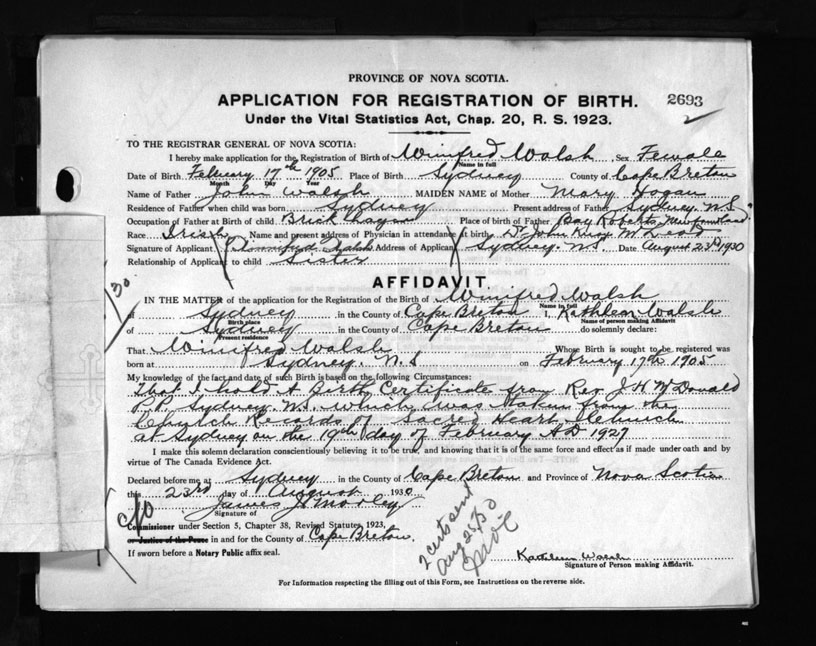 PROVINCE OF NOVA SCOTIA.
APPLICATION FOR REGISTRATION OF BIRTH. 2693
Under the Vital Statistics Act, Chap. 20, R. S. 1923. 2
TO THE REGISTRAR GENERAL OF NOVA SCOTIA:
I hereby make application for the Registration of Birth of Winifred Walsh, Sex Female
Name in full
Date of Birth February 17th 1905 Place of Birth Sydney County of Cape Breton
Month Day Year
Name of Father John Walsh MAIDEN NAME of Mother Mary Hogan
Residence of Father when child was born Sydney Present address of Father Sydney N.S
Occupation of Father at Birth of child Brick Place of birth of Father Bay Roberts, Newfoundland
Race Irish Name and present address of Physician in attendance at birth Dr John
Signature of Applicant Winnifred Walsh Address of Applicant Sydney N.S. Date August 23rd 1930
Relationship of Applicant to child Sister
AFFIDAVIT.
IN THE MATTER of the application for the Registration of the Birth of Winifred Walsh
Name in full
of Sydney in the County of Cape Breton I, Kathleen Walsh
Birth place Name of person making Affidavit
of Sydney in the County of Cape Breton do solemnly declare:
Present residence
That Winifred Walsh Whose Birth is sought to be registered was
born at Sydney. N.S on February 17th 1905
My knowledge of the fact and date of such Birth is based on the following Circumstances:
That I hold A Birth Certificate from Rev J. H McDonald
P.P. Sydney. N.S. which was taken from the
Church Records of Sacred Heart Church
at Sydney on the 19th day of February A.D 1927
I make this solemn declaration conscientiously believing it to be true, and knowing that it is of the same force and effect as if made under oath and by
virtue of The Canada Evidence Act.
Declared before me at Sydney in the County of Cape Breton and Province of Nova Scotia
this 23rd day of August 1930
James A Morley
Signature of
Commissioner under Section 5, Chapter 38, Revised Statutes, 1923,
or Justice of the Peace in and for the County of Cape Breton.
If sworn before a Notary Public affix seal.
2 certs sent
Aug 25/30
Kathleen Walsh
Signature of Person making Affidavit.
For Information respecting the filling out of this Form, see Instructions on the reverse side.